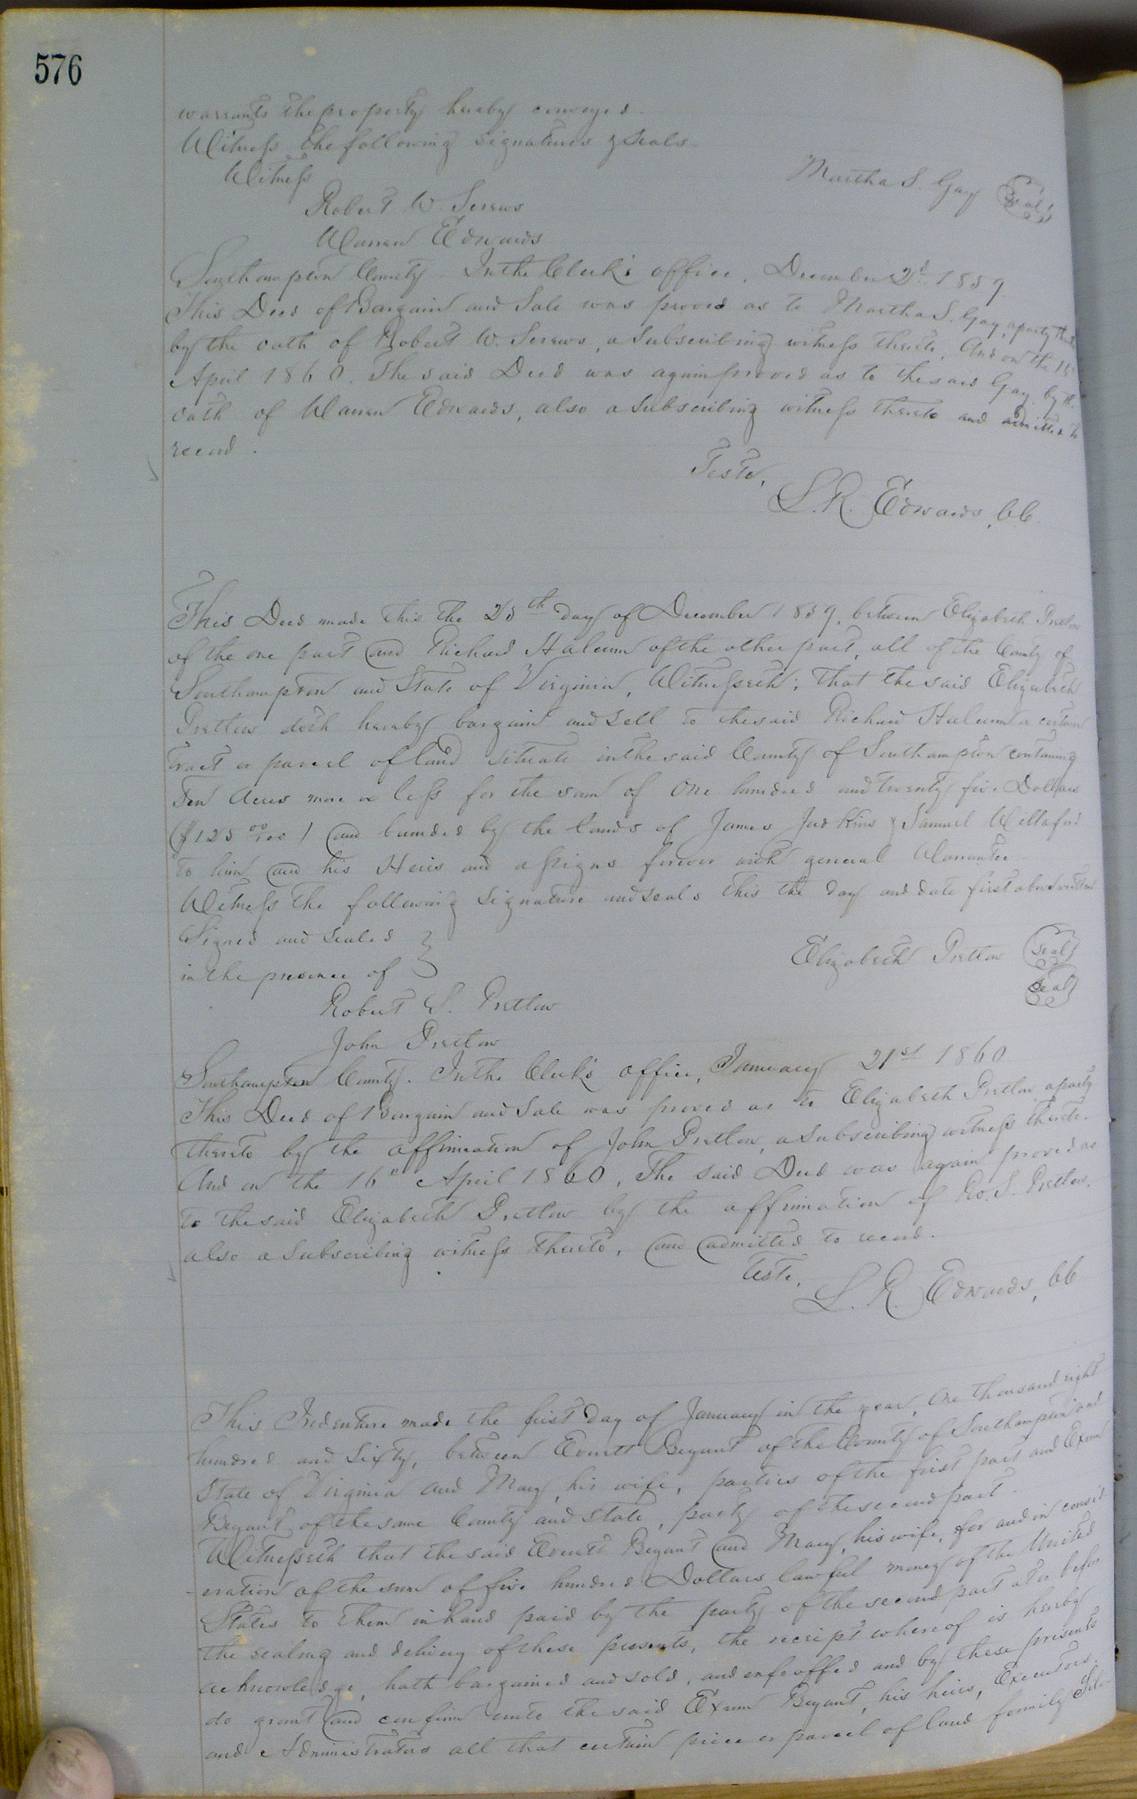 576
warrants the property hereby conveyed.
Witness the following signatures & seals.
Witness
Martha S. Gay (Seal)
Robert W. Screws
Warren Edwards
Southampton County. In the Clerk's office. December 2d 1859
This Deed of Bargain and Sale was proved as to Martha S. Gay, a party thereto
by the oath of Robert W. Screws, a Subscribing witness thereto, And on the 16th
April 1860. The said Deed was again proved as to the said Gay by the
oath of Warren Edwards, also a Subscribing witness thereto and admitted to
record.
Teste,
L. R. Edwards, CC
This Deed made this the 25th day of December 1859, between Elizabeth Pretlow
of the one part and Richard Haleum of the other part, all of the County of
Southampton and State of Virginia, Witnesseth; that the said Elizabeth
Pretlow doth hereby bargain and sell to the said Richard Haleum a certain
tract or parcel of land situate in the said County of Southampton containing
Ten Acres more or less for the sum of One hundred and twenty five Dollars
($125 00/100) and bounded by the lands of James Judkins & Samuel Wellaford
to him and his Heirs and assigns forever with general Warrantee
Witness the following signature and seals this the day and date first above written
Signed and sealed }
in the presence of }
Elizabeth Pretlow (Seal)
(Seal)
Robert S. Pretlow
John Pretlow
Southampton County. In the Clerk's office, January 21st 1860
This Deed of Bargain and Sale was proved as to Elizabeth Pretlow a party
thereto by the affirmation of John Pretlow, a Subscribing witness thereto.
And on the 16th April 1860, The said Deed was again proved as
to the said Elizabeth Pretlow by the affirmation of Ro. S. Pretlow,
also a Subscribing witness thereto, and admitted to record.
Teste,
L. R. Edwards, CC
This Indenture made the first day of January in the year, One thousand eight
hundred and Sixty, between Everett Bryant of the County of Southampton and
State of Virginia and Mary, his wife, parties of the first part and Exum
Bryant of the same County and state, party of the second part.
Witnesseth that the said Everett Bryant and Mary, his wife, for and in consid
-eration of the sum of five hundred Dollars lawful money of the United
States to them in hand paid by the party of the second part at or before
the sealing and delivery of these presents, the receipt whereof is hereby
acknowledge, hath bargained and sold, and enfeoffed and by these presents
do grant and confirm unto the said Exum Bryant, his heirs, Executors
and Administrators all that certain piece or parcel of land